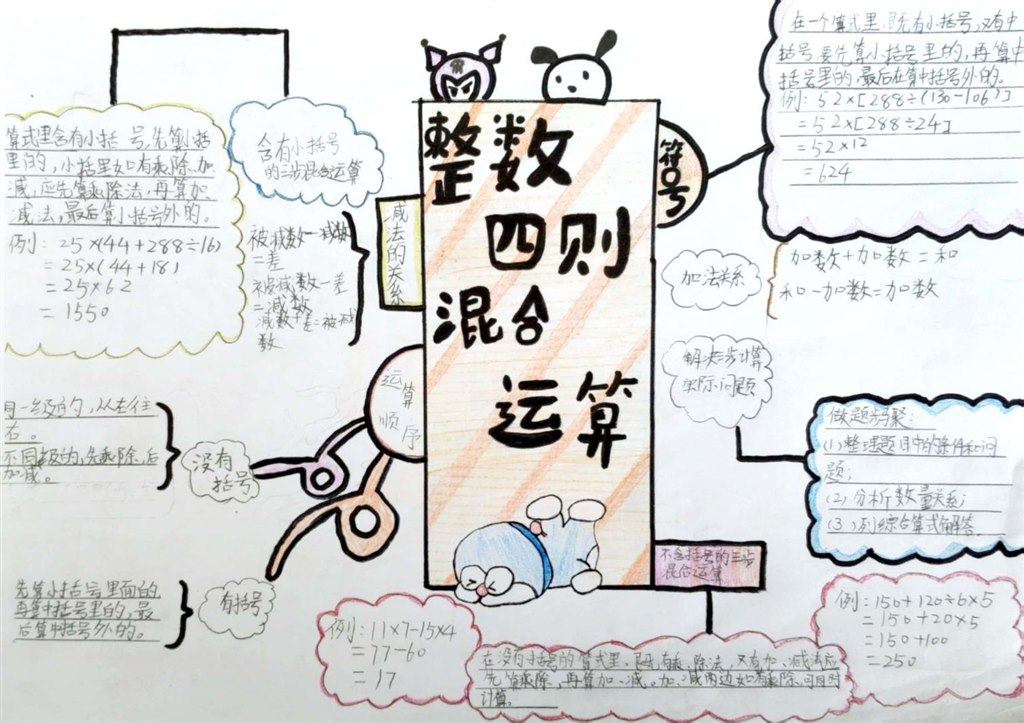 整数
四则
混合
运算
符号
在一个算式里,既有小括号,又有中
括号,要先算小括号里的,再算中
括号里的,最后在算中括号外的。
例:52×[288÷(130-106)]
=52×[288÷24]
=52×12
=624
加法关系
加数+加数=和
和-加数=加数
解决三步计算
实际问题
做题步聚:
(1)整理题目中的条件和问
题;
(2)分析数量关系;
(3)列综合算式解答
不含括号的三步
混合运算
例:150+120÷6×5
=150+20×5
=150+100
=250
在没有小括号的算式里,既有乘、除法,又有加、减法应
先算乘除,再算加、减。加、减两边如有乘除,可同时
计算。
例:11×7-15×4
=77-60
=17
含有小括号
的三步混合运算
算式里含有小括号,先算小括
里的,小括里如有乘除加
减,应先算乘除法,再算加
减法,最后算小括号外的。
例:25×(44+288÷16)
=25×(44+18)
=25×62
=1550
减法的关系
被减数-减数
=差
被减数-差
=减数
减数+差=被减
数
运算
顺序
没有
括号
同一级的,从左往
右。
不同级的,先乘除,后
加减。
有括号
先算小括号里面的
再算中括号里的,最
后算中括号外的。